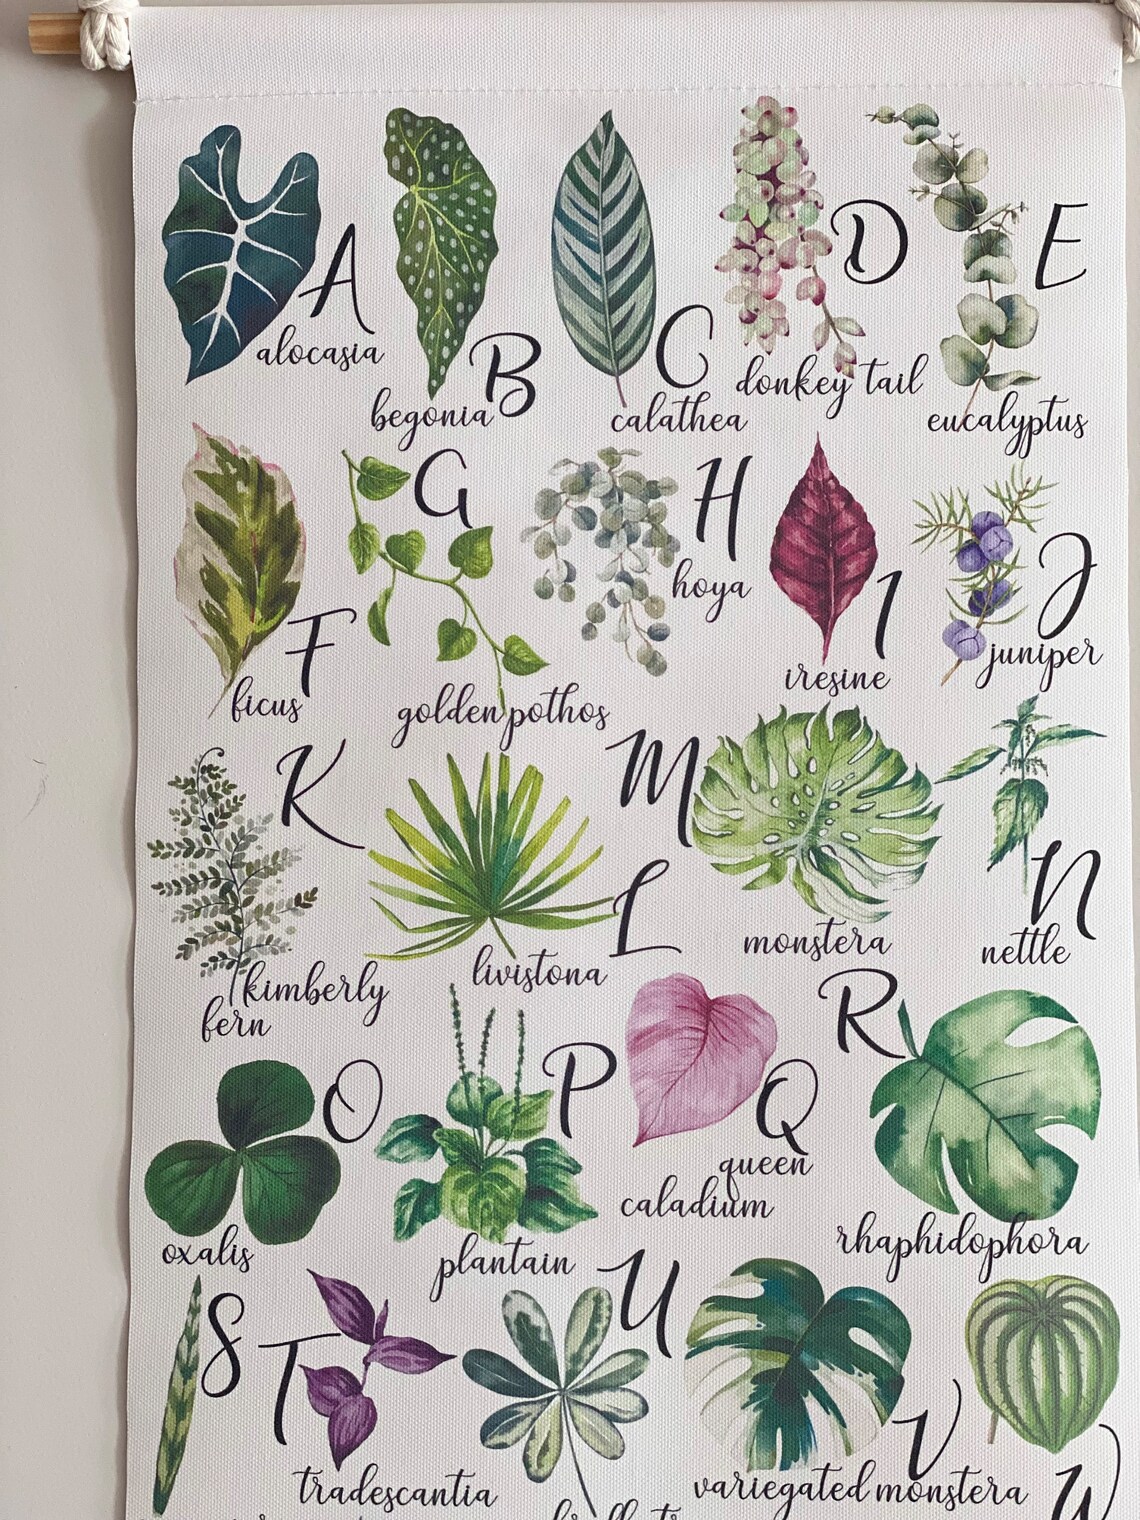 A
alocasia
B
begonia
C
calathea
D
donkey tail
E
eucalyptus
F
ficus
G
golden pothos
H
hoya
I
iresine
J
juniper
K
kimberly
fern
L
livistona
M
monstera
N
nettle
O
oxalis
P
plantain
Q
queen
caladium
R
rhaphidophora
S
T
tradescantia
U
V
variegated monstera
W